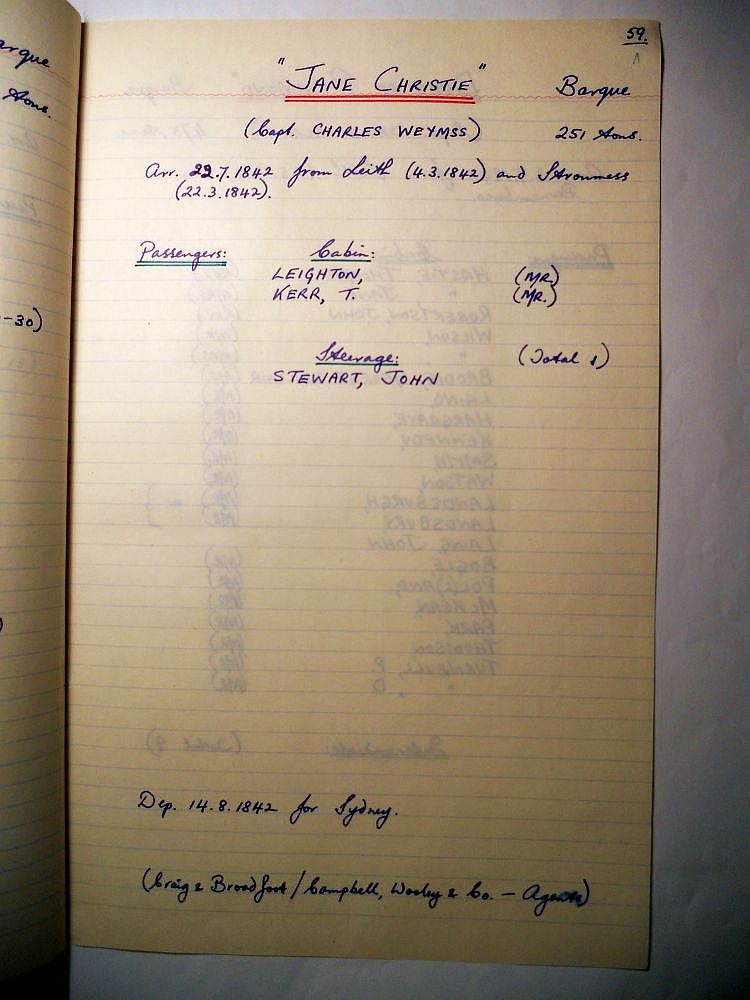 59.
"JANE CHRISTIE" Barque
(Capt. CHARLES WEYMSS) 251 tons.
Arr. 22.7.1842 from Leith (4.3.1842) and Stromness
(22.3.1842).
Passengers: Cabin:
LEIGHTON, (MR.)
KERR, T. (MR.)
Steerage: (Total 1)
STEWART, JOHN
Dep. 14.8.1842 for Sydney.
(Craig & Broadfoot / Campbell, Wooley & Co. — Agents)
arque
tons.
-30)